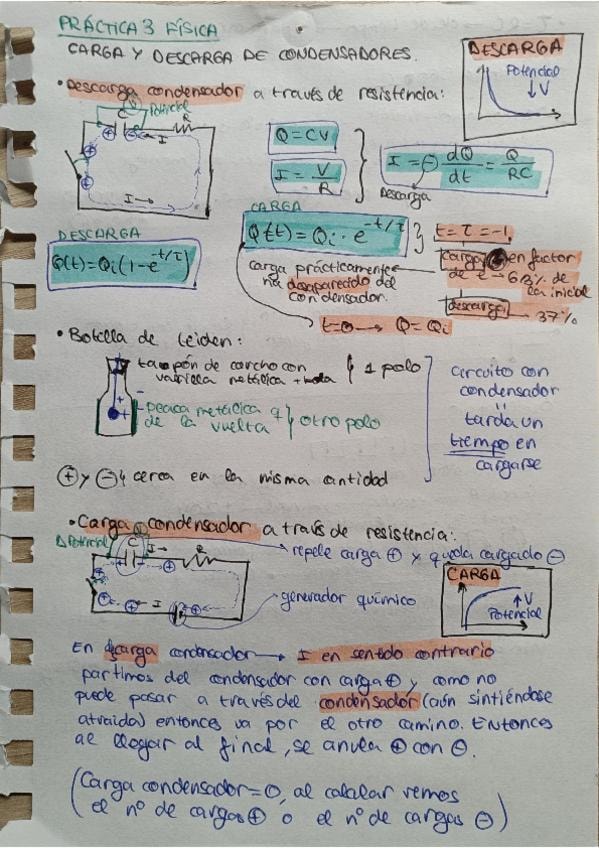 PRÁCTICA 3 FÍSICA
CARGA Y DESCARGA DE CONDENSADORES.
DESCARGA
Potencial
↓ V
• Descarga condensador a través de resistencia:
Potencial
C
R
I
I →
Q = CV
I = V/R
I = ⊖ dQ/dt = Q/RC
Descarga
DESCARGA
Q(t) = Qi (1 - e^-t/τ)
CARGA
Q(t) = Qi · e^-t/τ
t = τ = -1
carga en factor
de t → 63% de
la inicial
descarga → 37%
carga prácticamente
ha desaparecido del
condensador.
t=0 → Q = Qi
• Botella de leiden:
tampón de corcho con
varilla metálica + bola } 1 polo
placa metálica q
de la vuelta } otro polo
circuito con
condensador
=
tarda un
tiempo en
cargarse
⊕ y ⊖ cerca en la misma cantidad
• Carga condensador a través de resistencia:
Δ Potencial
C
I →
R
I
repele carga ⊕ y queda cargado ⊖
generador químico
CARGA
↑ V
Potencial
En descarga condensador → I en sentido contrario
partimos del condensador con carga ⊕ y como no
puede pasar a través del condensador (aún sintiéndose
atraída) entonces va por el otro camino. Entonces
al llegar al final, se anula ⊕ con ⊖.
(Carga condensador = 0, al calcular vemos
el nº de cargas ⊕ o el nº de cargas ⊖)